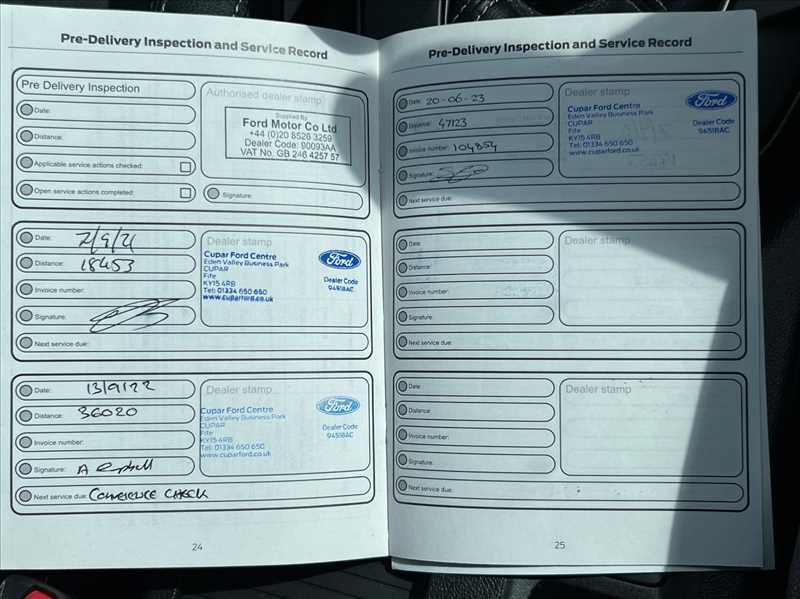 Pre-Delivery Inspection and Service Record
Pre Delivery Inspection
Date:
Distance:
Applicable service actions checked:
Open service actions completed:
Authorised dealer stamp
Supplied By
Ford Motor Co Ltd
+44 (0)20 8526 3259
Dealer Code: 90093AA
VAT No. GB 246 4257 57
Signature:
Date: 2/9/21
Distance: 18453
Invoice number:
Signature:
Next service due:
Dealer stamp
Cupar Ford Centre
Eden Valley Business Park
CUPAR
Fife
KY15 4RB
Tel: 01334 650 650
www.cuparford.co.uk
Ford
Dealer Code
94518AC
Date: 13/9/22
Distance: 36020
Invoice number:
Signature: A
Next service due: CONVENIENCE CHECK
Dealer stamp
Cupar Ford Centre
Eden Valley Business Park
CUPAR
Fife
KY15 4RB
Tel: 01334 650 650
www.cuparford.co.uk
Ford
Dealer Code
94518AC
24
Pre-Delivery Inspection and Service Record
Date: 20-06-23
Distance: 47123
Invoice number: 104854
Signature:
Next service due:
Dealer stamp
Cupar Ford Centre
Eden Valley Business Park
CUPAR
Fife
KY15 4RB
Tel: 01334 650 650
www.cuparford.co.uk
Ford
Dealer Code
94518AC
Date:
Distance:
Invoice number:
Signature:
Next service due:
Dealer stamp
Date:
Distance:
Invoice number:
Signature:
Next service due:
Dealer stamp
25